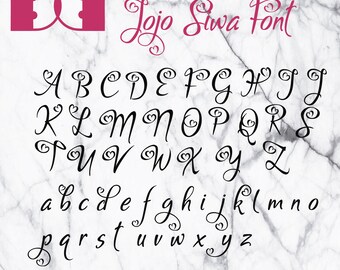 Jojo Siwa Font
A B C D E F G H I J
K L M N O P Q R S
T U V W X Y Z
a b c d e f g h i j k l m n o
p q r s t u v w x y z